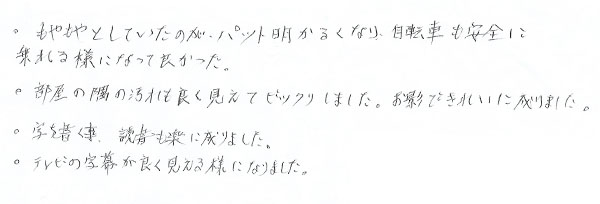 。もやもやとしていたのが、パット明かるくなり、自転車も安全に
乗れる様になって良かった。
。部屋の隅の汚れも良く見えてビックリしました。お影できれいに成りました。
。字を書く事、読書も楽に成りました。
。テレビの字幕が良く見える様になりました。